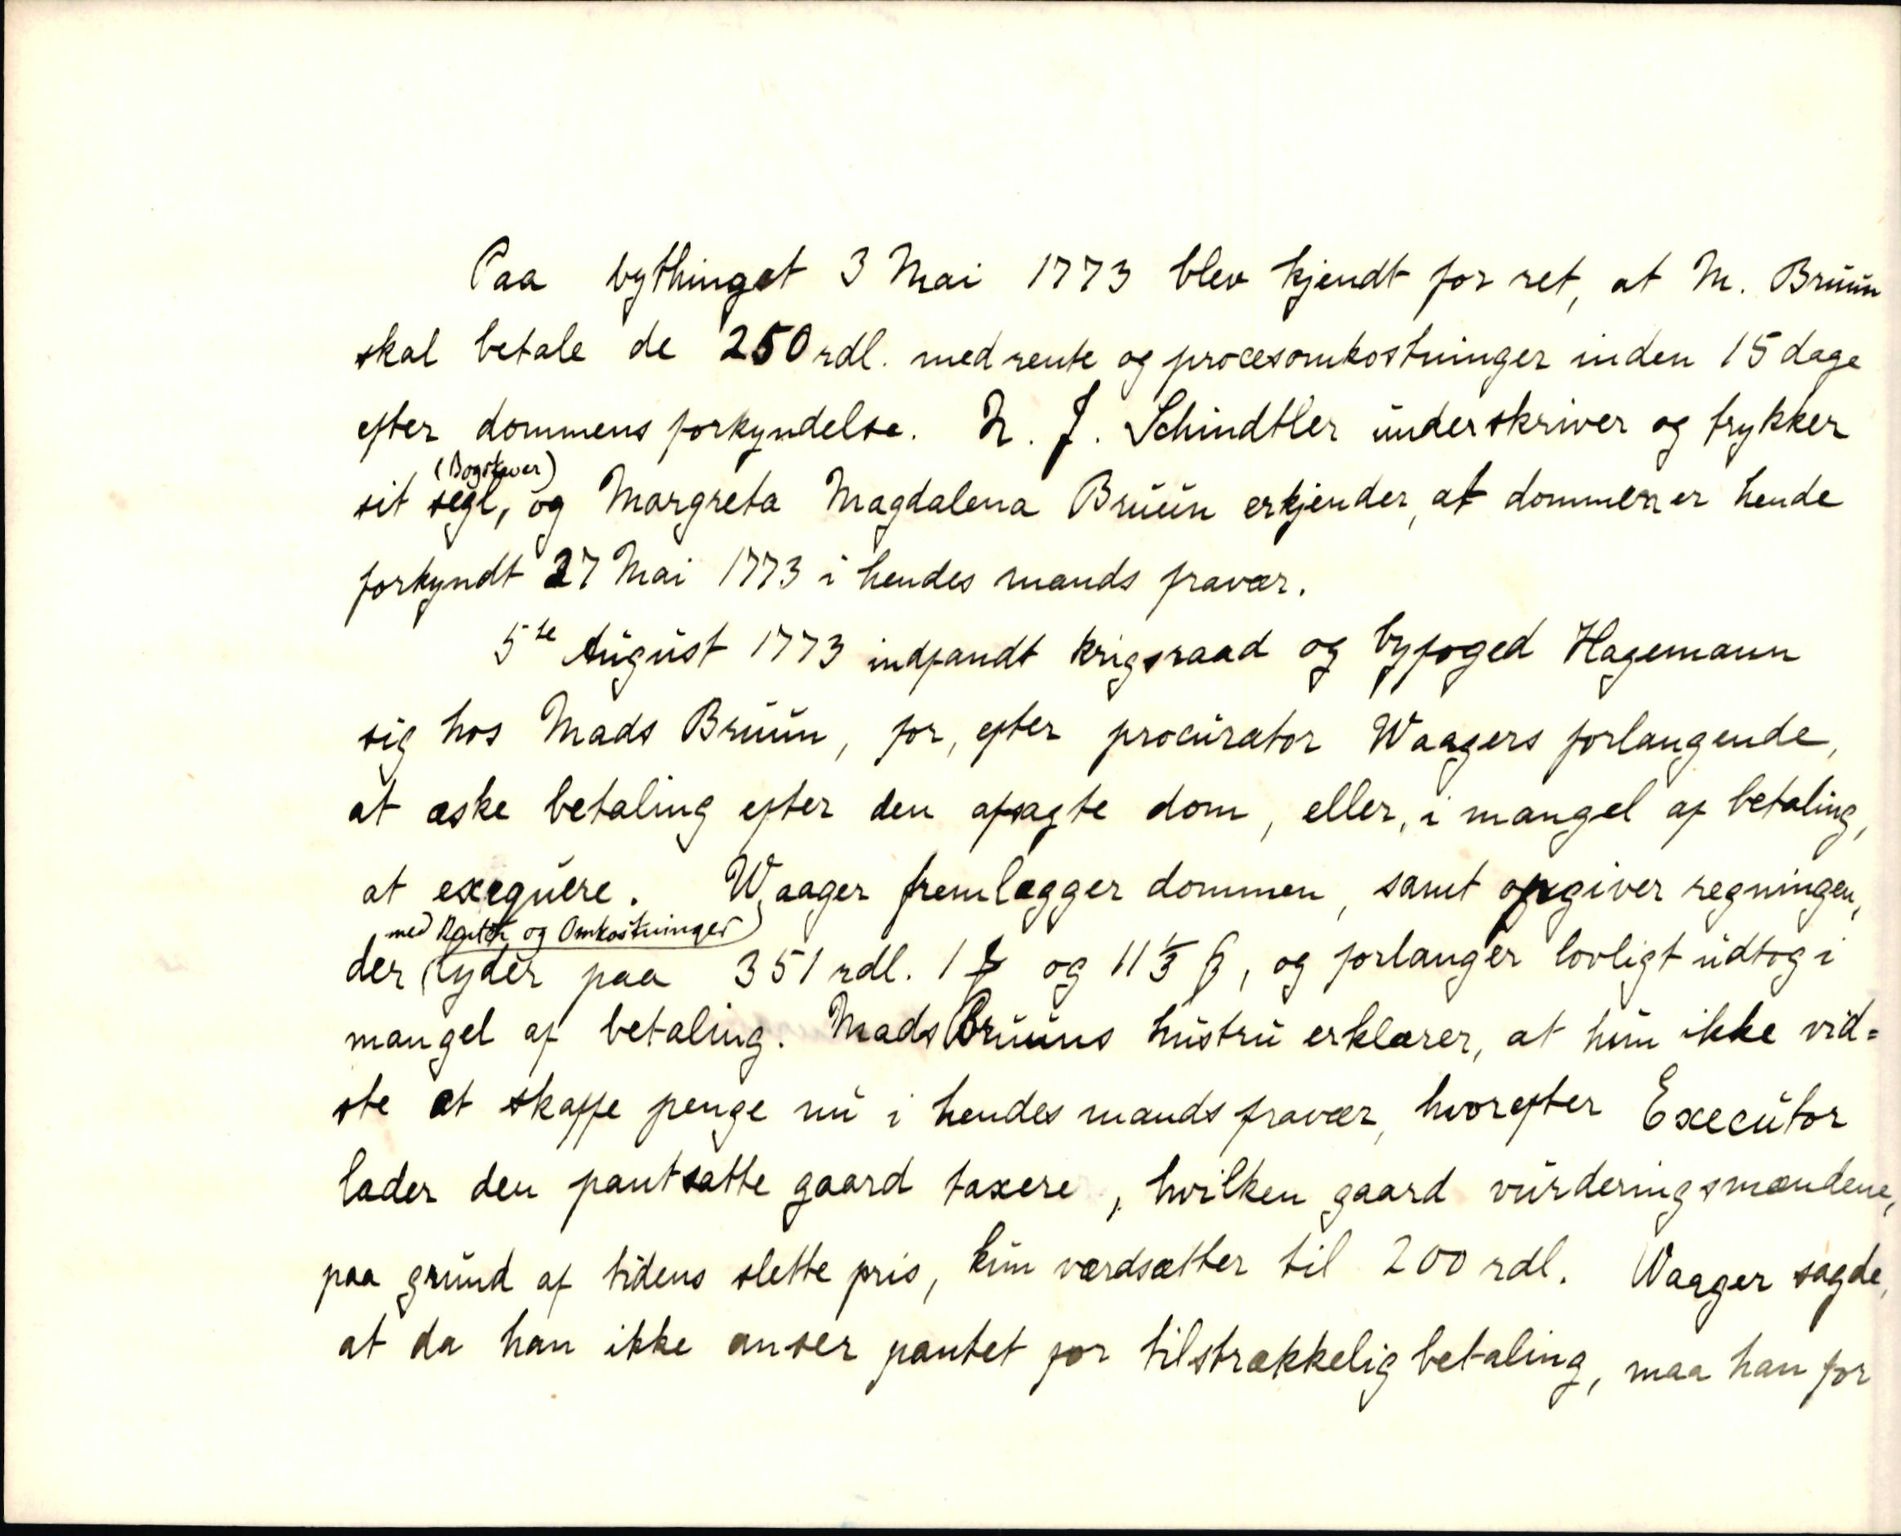 Paa bythinget 3 Mai 1773 blev kjendt for ret, at M. Bruun
skal betale de 250 rdl. med rente og procesomkostninger inden 15 dage
efter dommens forkyndelse. N. J. Schindtler underskriver og trykker
(Bogstaver)
sit segl, og Margreta Magdalena Bruun erkjender, at dommen er hende
forkyndt 27 Mai 1773 i hendes mands fravær.
5te August 1773 indfandt krigsraad og byfoged Hagemann
sig hos Mads Bruun, for, efter procurator Waagers forlangende,
at æske betaling efter den afsagte dom, eller, i mangel af betaling,
at exequere. Waager fremlægger dommen, samt opgiver regningen,
med Renter og Omkostninger
der lyder paa 351 rdl. 1 ꝑ og 11 1/3 ß, og forlanger lovligt udtog i
mangel af betaling. Mads Bruuns hustru erklærer, at hun ikke vid=
ste at skaffe penge nu i hendes mands fravær, hvorefter Executor
lader den pantsatte gaard taxere, hvilken gaard vurderingsmændene,
paa grund af tidens slette pris, kun værdsætter til 200 rdl. Waager sagde,
at da han ikke anser pantet for tilstrækkelig betaling, maa han for